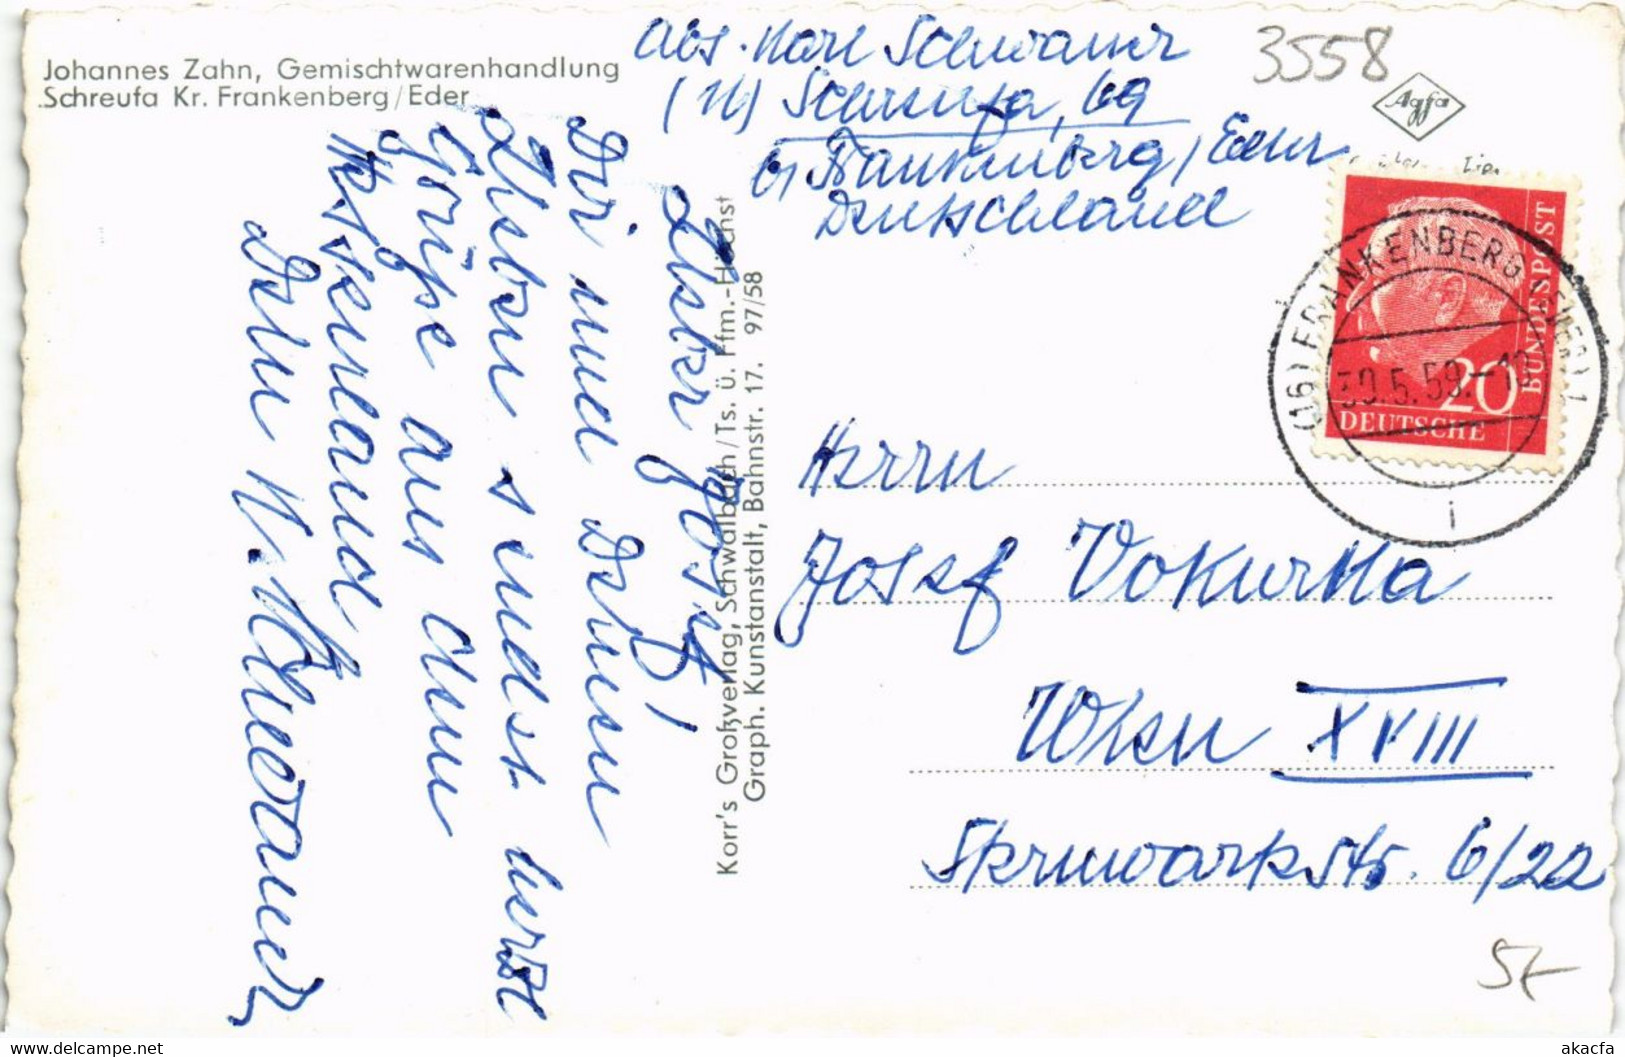 Johannes Zahn, Gemischtwarenhandlung
Schreufa Kr. Frankenberg/Eder
Abs. Karl Schwaner
(16) Schreufa, 69
b, Frankenberg, Eder
Deutschland
3558
Agfa
Lieber Josef!
Dir und Deinen
Lieben sendet herzl
Grüße aus dem
Hessenland
Dein K. Schwaner
Korr's Großverlag, Schwalbach/Ts. ü. Ffm.-Höchst
Graph. Kunstanstalt, Bahnstr. 17. 97/58
(16) FRANKENBERG (EDER) 1
30.5.59.-10
i
20
DEUTSCHE
BUNDESPOST
Herrn
Josef Vokurka
Wien XVIII
6/22
5,-
akacfa